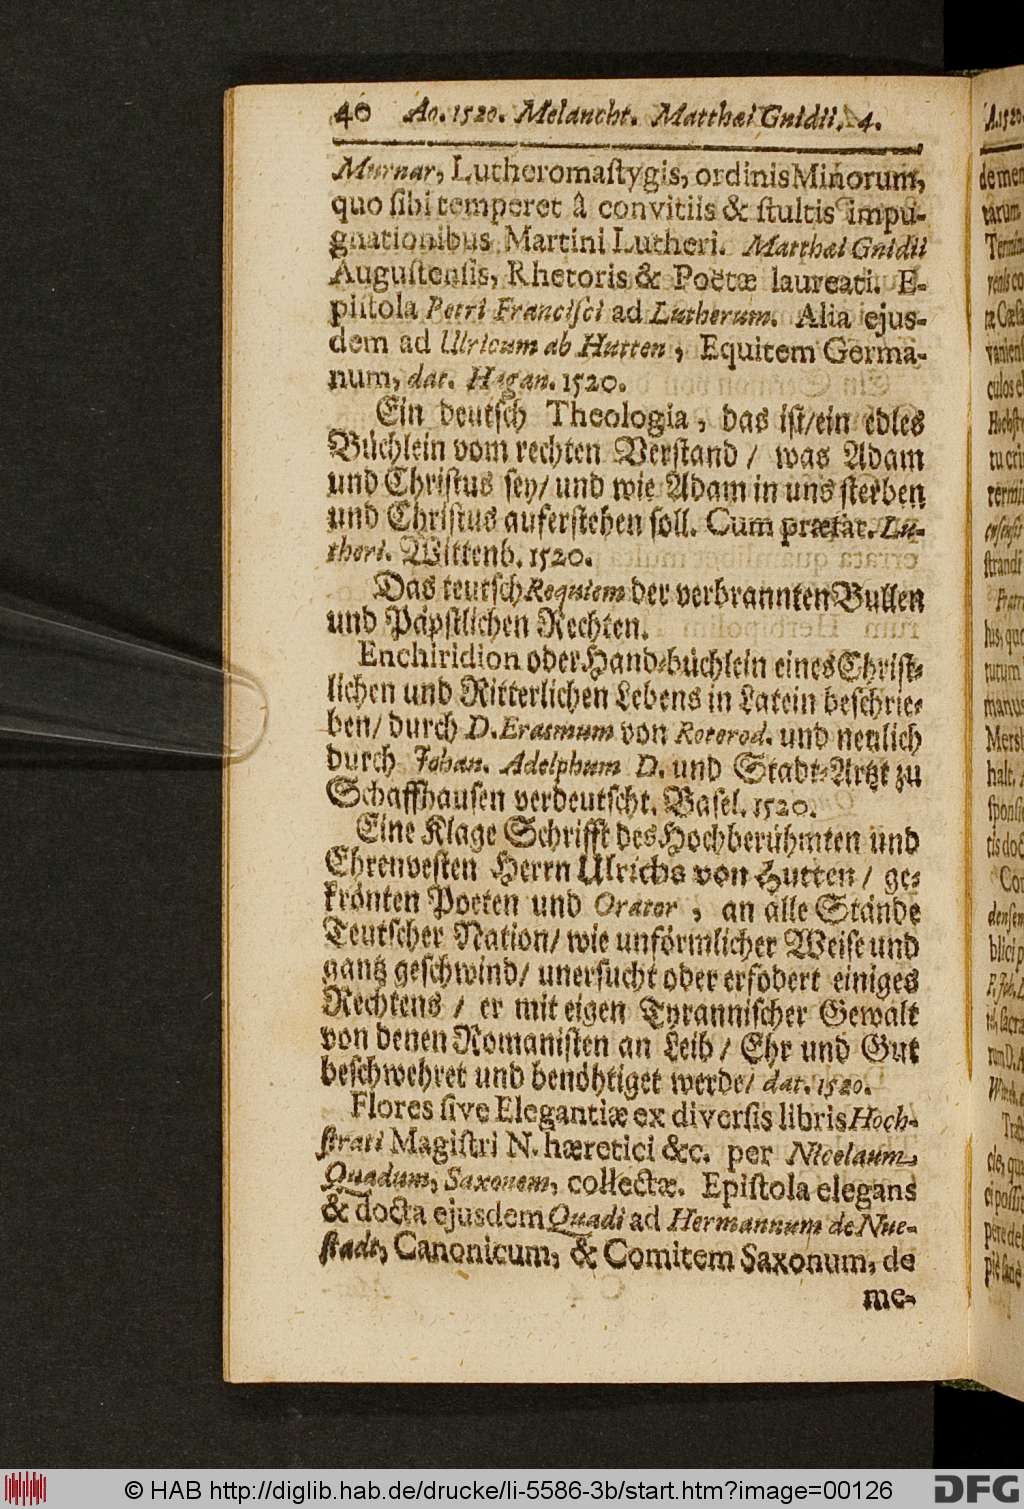 40 Ao. 1520. Melancht. Matthæi Gnidii, 4.
Murnar, Lutheromaſtygis, ordinis Minorum,
quo ſibi temperet â convitiis & ſtultis impu-
gnationibus Martini Lutheri. Matthæi Gnidii
Auguſtenſis, Rhetoris & Poëtæ laureati. E-
piſtola Petri Franciſci ad Lutherum. Alia ejus-
dem ad Ulricum ab Hutten, Equitem Germa-
num, dat. Hagan. 1520.
Ein deutſch Theologia, das iſt/ein edles
Büchlein vom rechten Verſtand / was Adam
und Chriſtus ſey/ und wie Adam in uns ſterben
und Chriſtus auferſtehen ſoll. Cum præfat. Lu-
theri. Wittenb. 1520.
Das teutſch Requiem der verbrannten Bullen
und Päpſtlichen Rechten.
Enchiridion oder Hand-büchlein eines Chriſt-
lichen und Ritterlichen Lebens in Latein beſchrie-
ben/ durch D. Erasmum von Roterod. und neulich
durch Johan. Adelphum D. und Stadt-Artzt zu
Schaffhauſen verdeutſcht. Baſel. 1520.
Eine Klage Schrifft des Hochberühmten und
Ehrenveſten Herrn Ulrichs von Hutten / ge-
krönten Poeten und Orator, an alle Stände
Teutſcher Nation/ wie unförmlicher Weiſe und
gantz geſchwind/ unerſucht oder erfodert einiges
Rechtens / er mit eigen Tyranniſcher Gewalt
von denen Romaniſten an Leib / Ehr und Gut
beſchwehret und benöhtiget werde/ dat. 1520.
Flores ſive Elegantiæ ex diverſis libris Hoch-
ſtrati Magiſtri N. hæretici &c. per Nicolaum
Quadum, Saxonem, collectæ. Epiſtola elegans
& docta ejusdem Quadi ad Hermannum de Nue-
ſtadt, Canonicum, & Comitem Saxonum, de
me-
© HAB http://diglib.hab.de/drucke/li-5586-3b/start.htm?image=00126
DFG